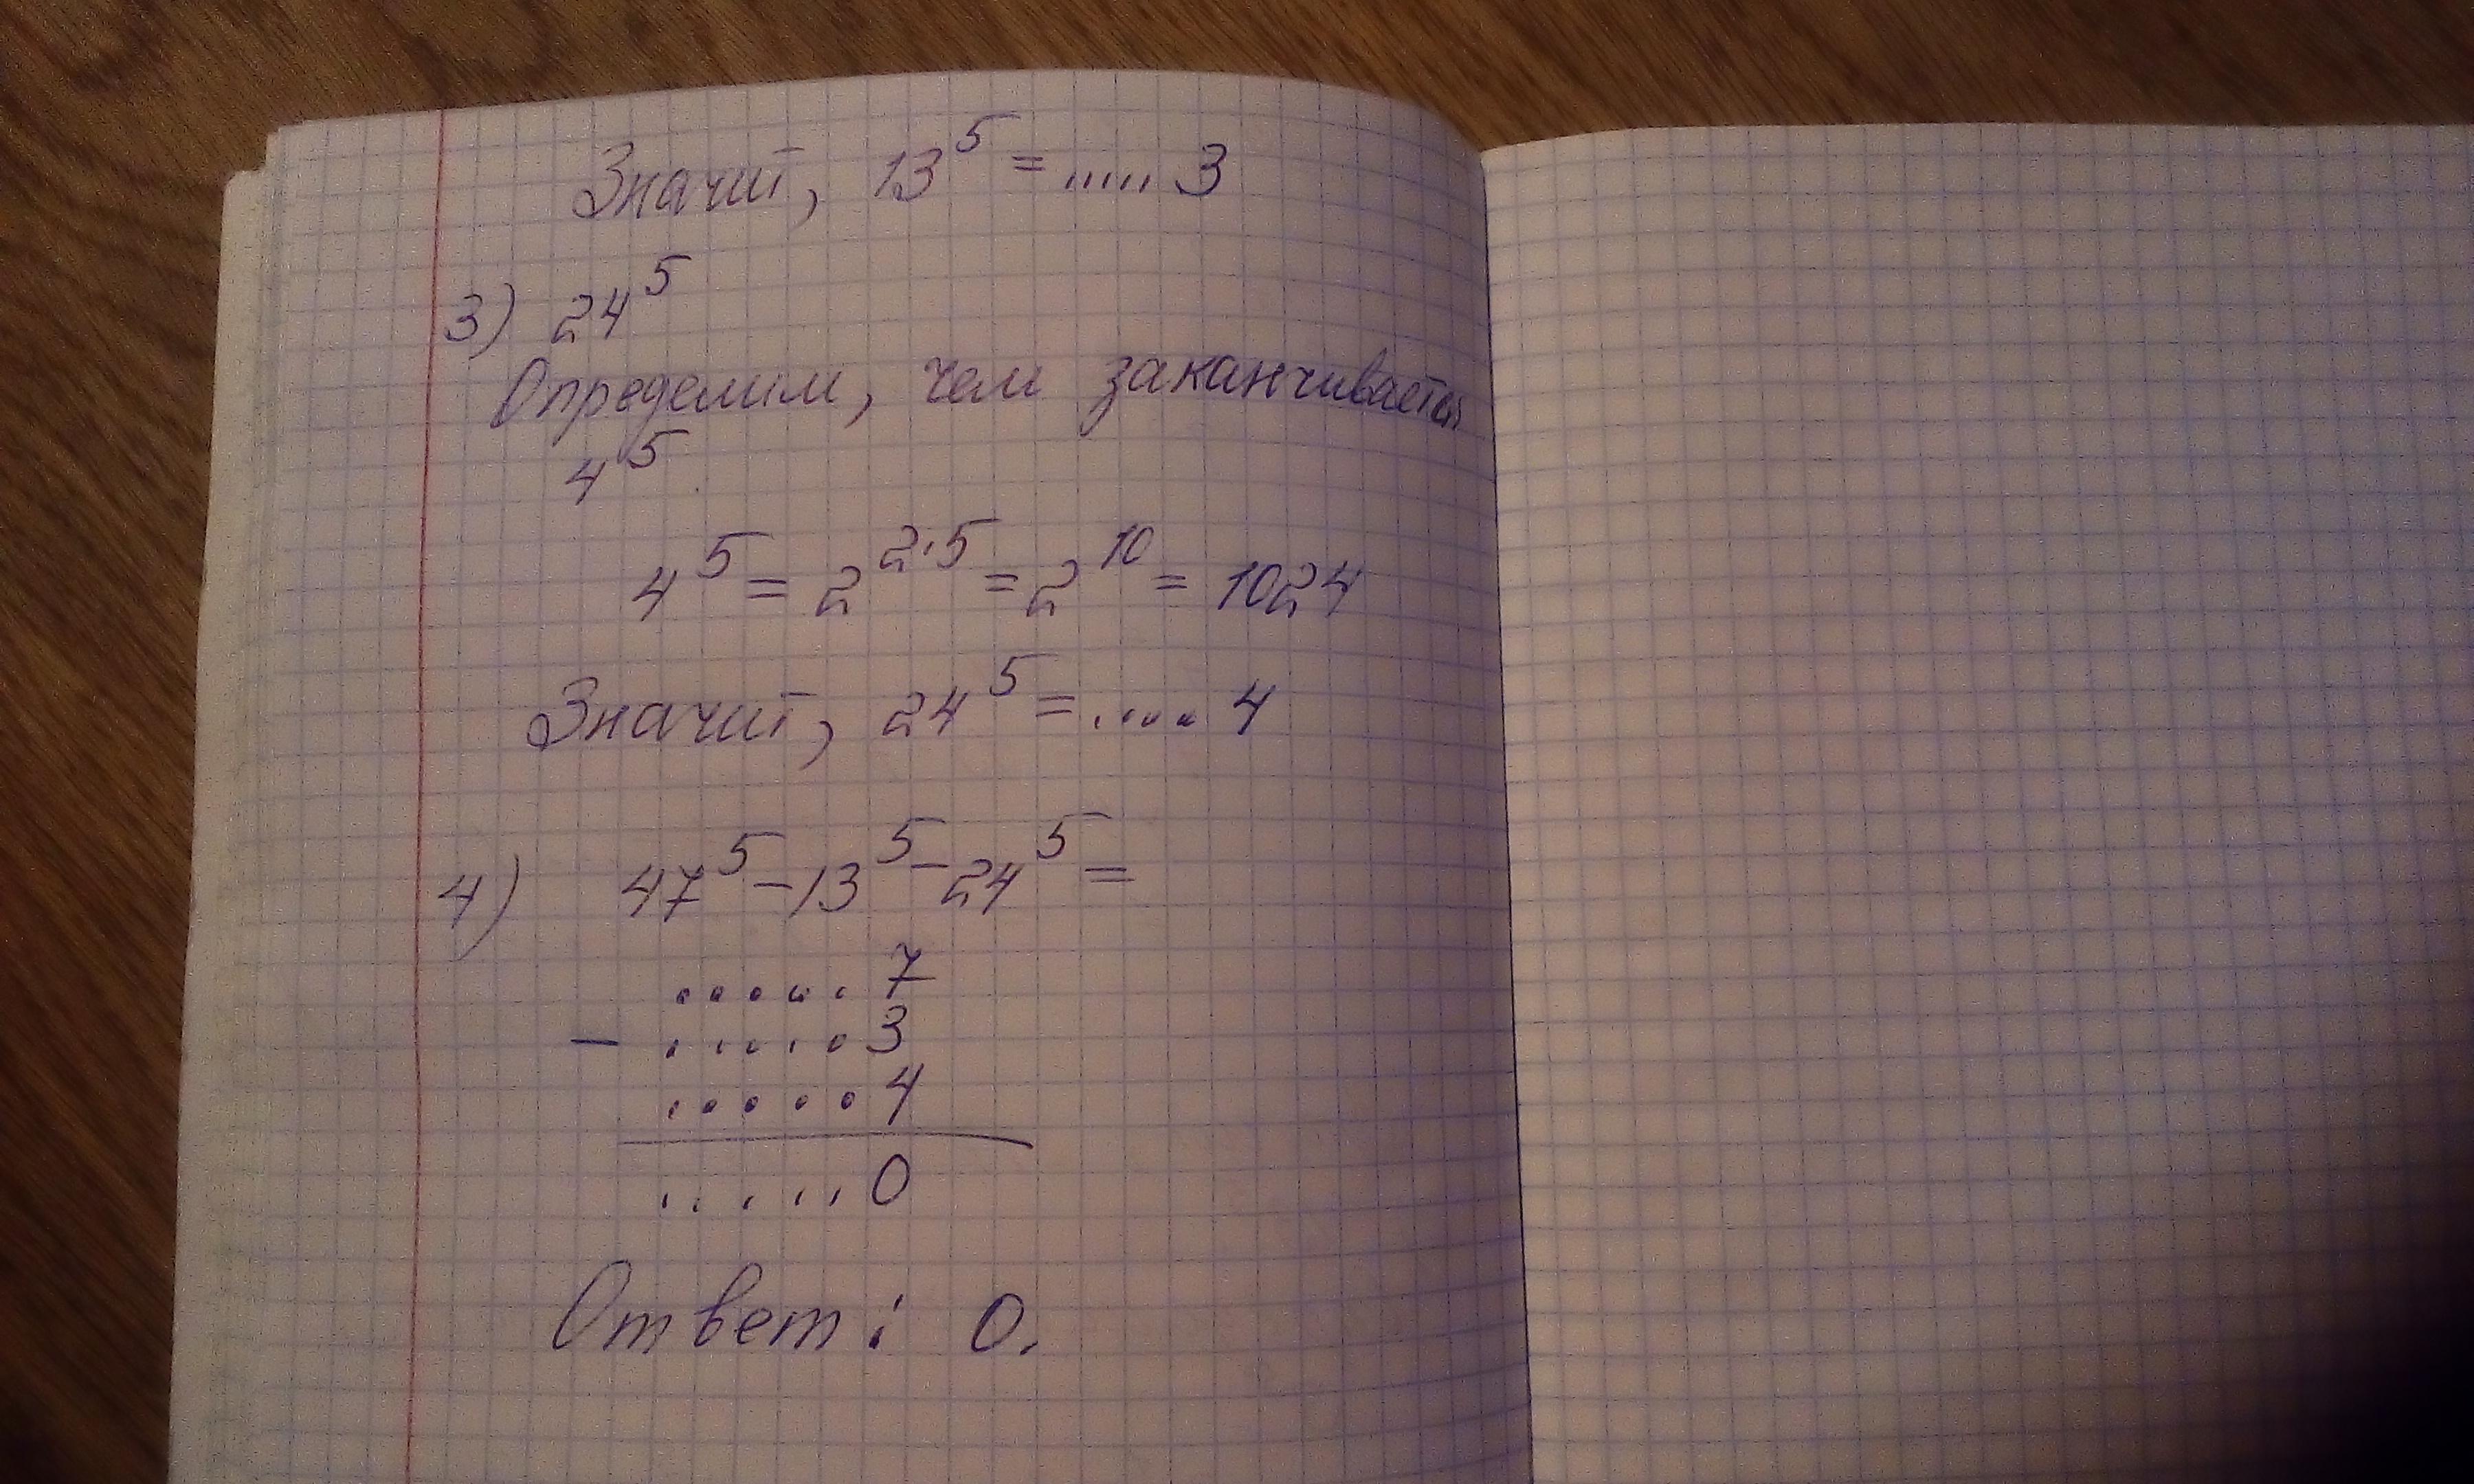 Значит, 13⁵ = ..... 3
3) 24⁵
Определим, чем заканчивается
4⁵.
4⁵ = 2²·⁵ = 2¹⁰ = 1024
Значит, 24⁵ = ..... 4
4) 47⁵ - 13⁵ - 24⁵ =
.....7
- .....3
.....4
.....0
Ответ: 0.